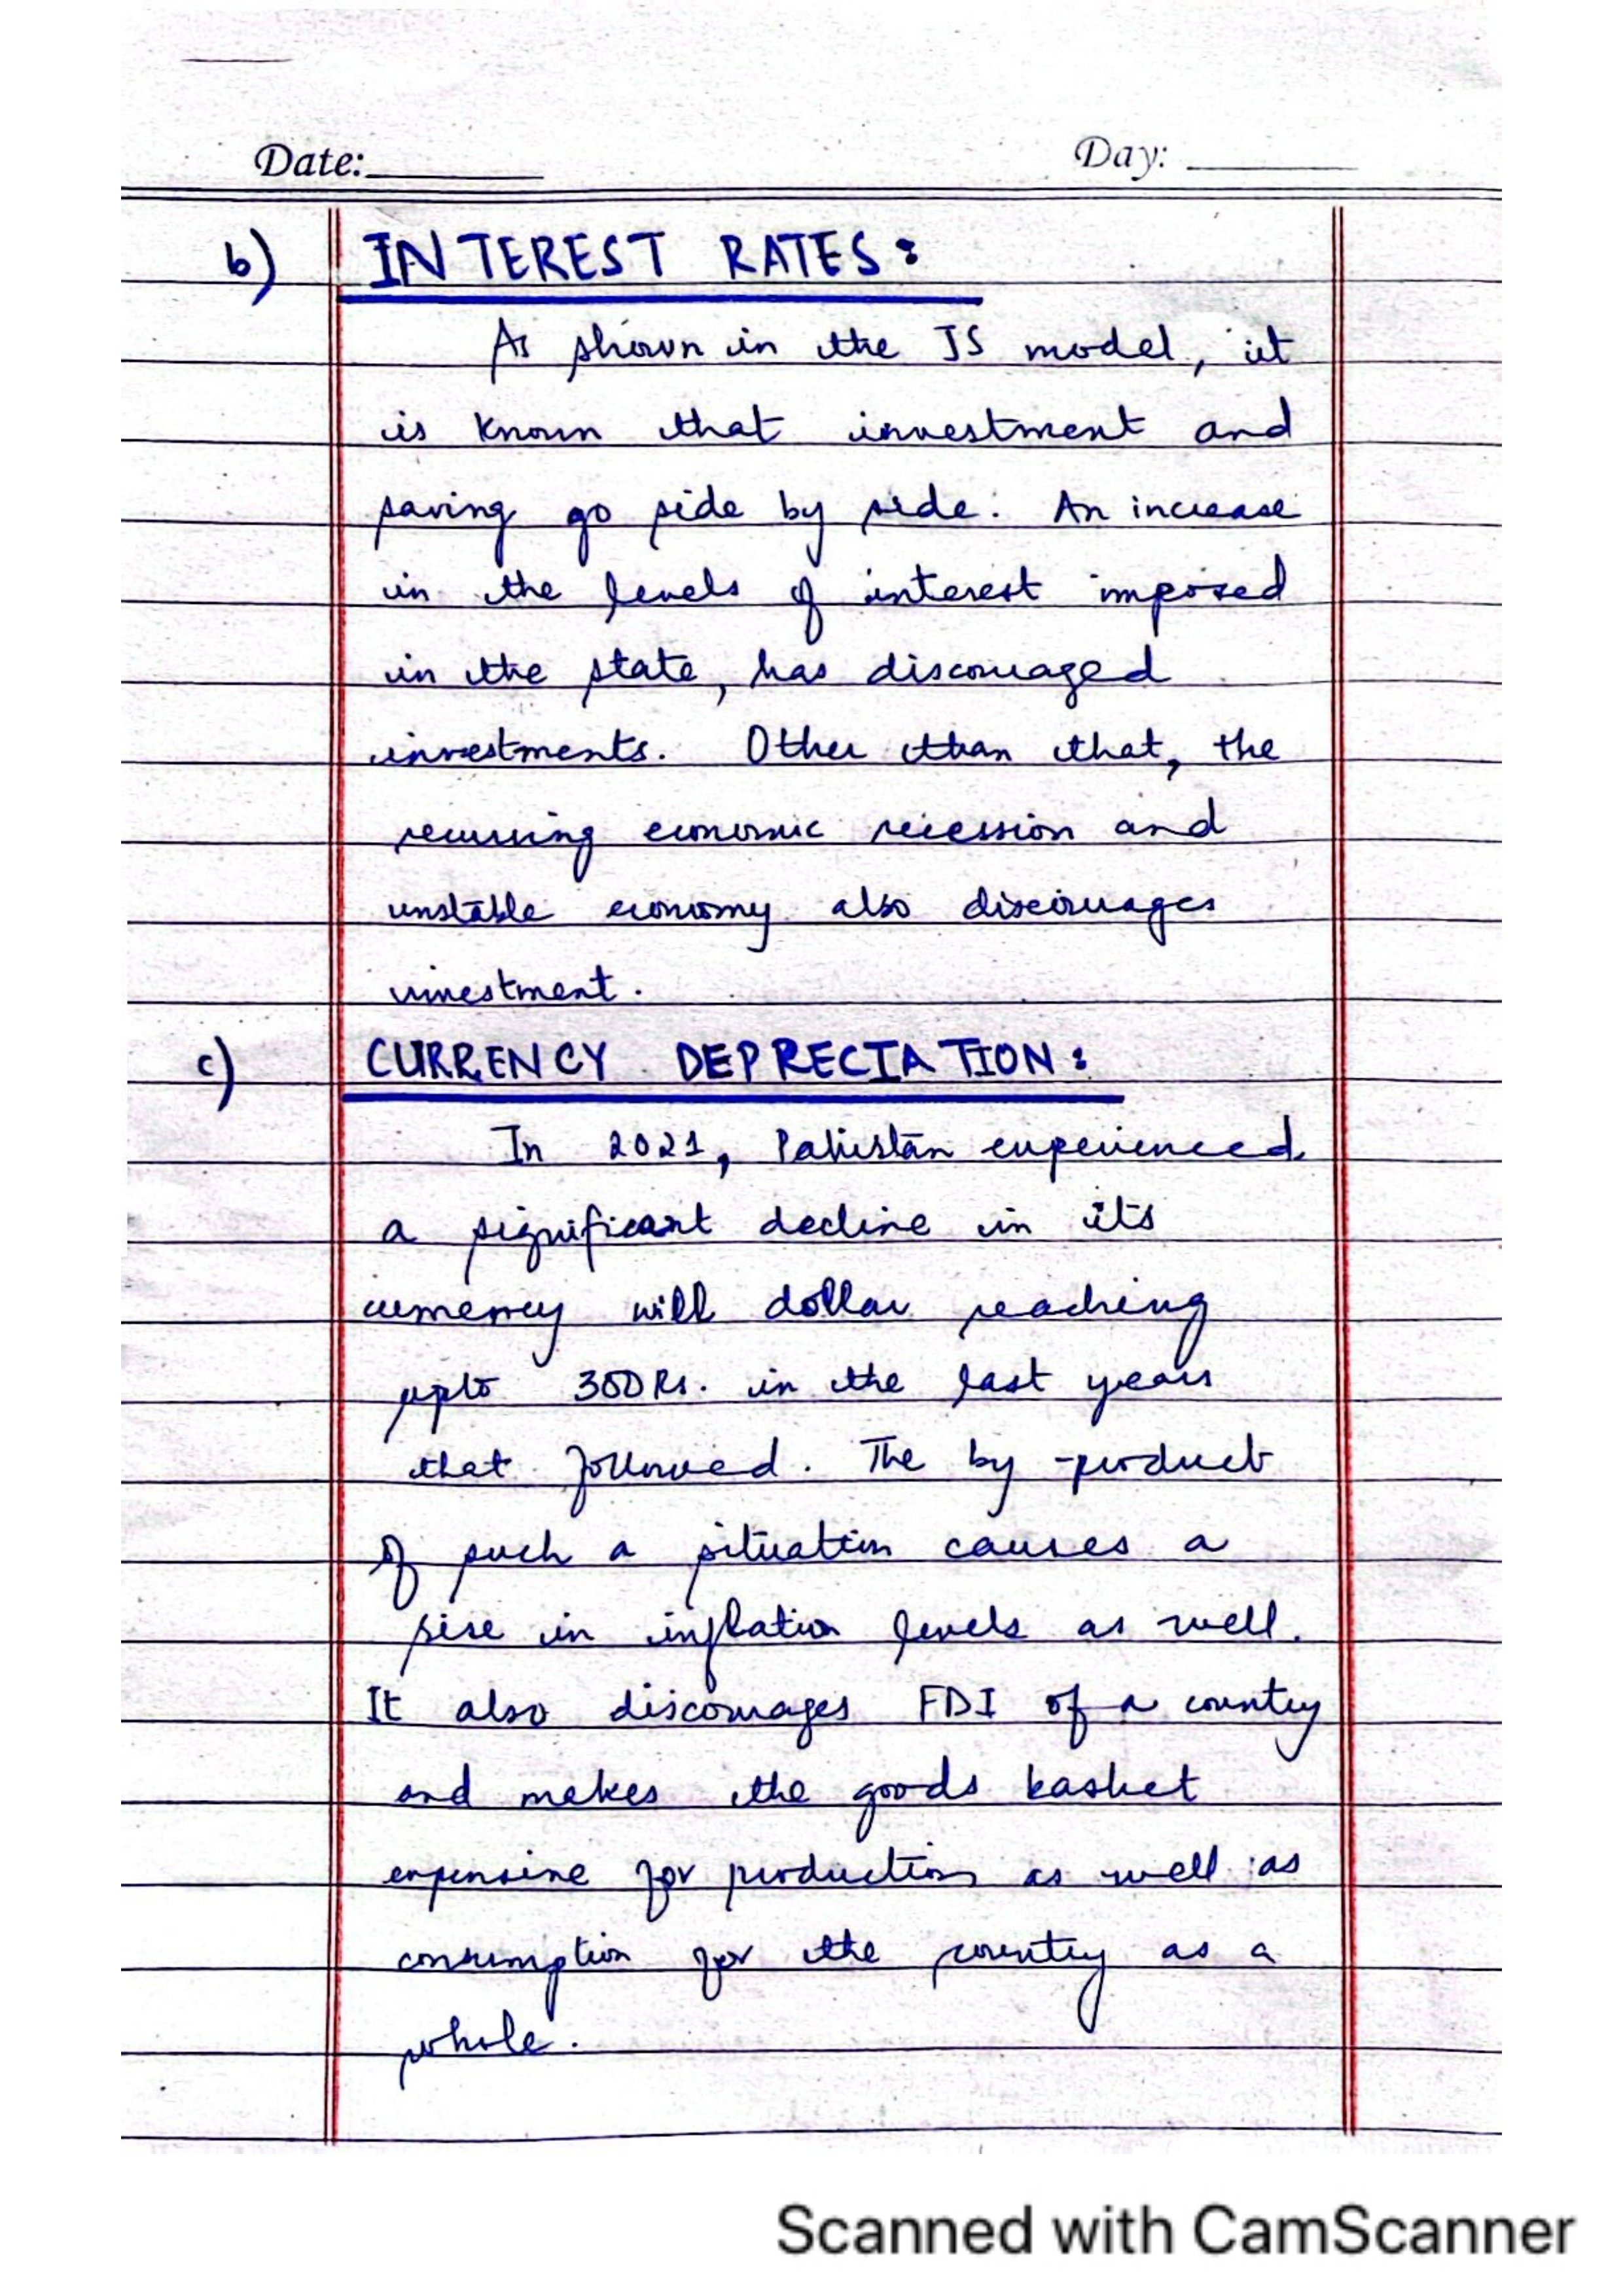 Date:
Day:
b) INTEREST RATES:
As shown in the IS model, it
is known that investment and
saving go side by side. An increase
in the levels of interest imposed
in the state, has discouraged
investments. Other than that, the
recurring economic recession and
unstable economy also discourages
investment.
c) CURRENCY DEPRECIATION:
In 2021, Pakistan experienced
a significant decline in its
currency will dollar reaching
upto 300Rs. in the last years
that followed. The by-product
of such a situation causes a
rise in inflation levels as well.
It also discourages FDI of a country
and makes the goods basket
expensive for production as well as
consumption for the country as a
whole.
Scanned with CamScanner